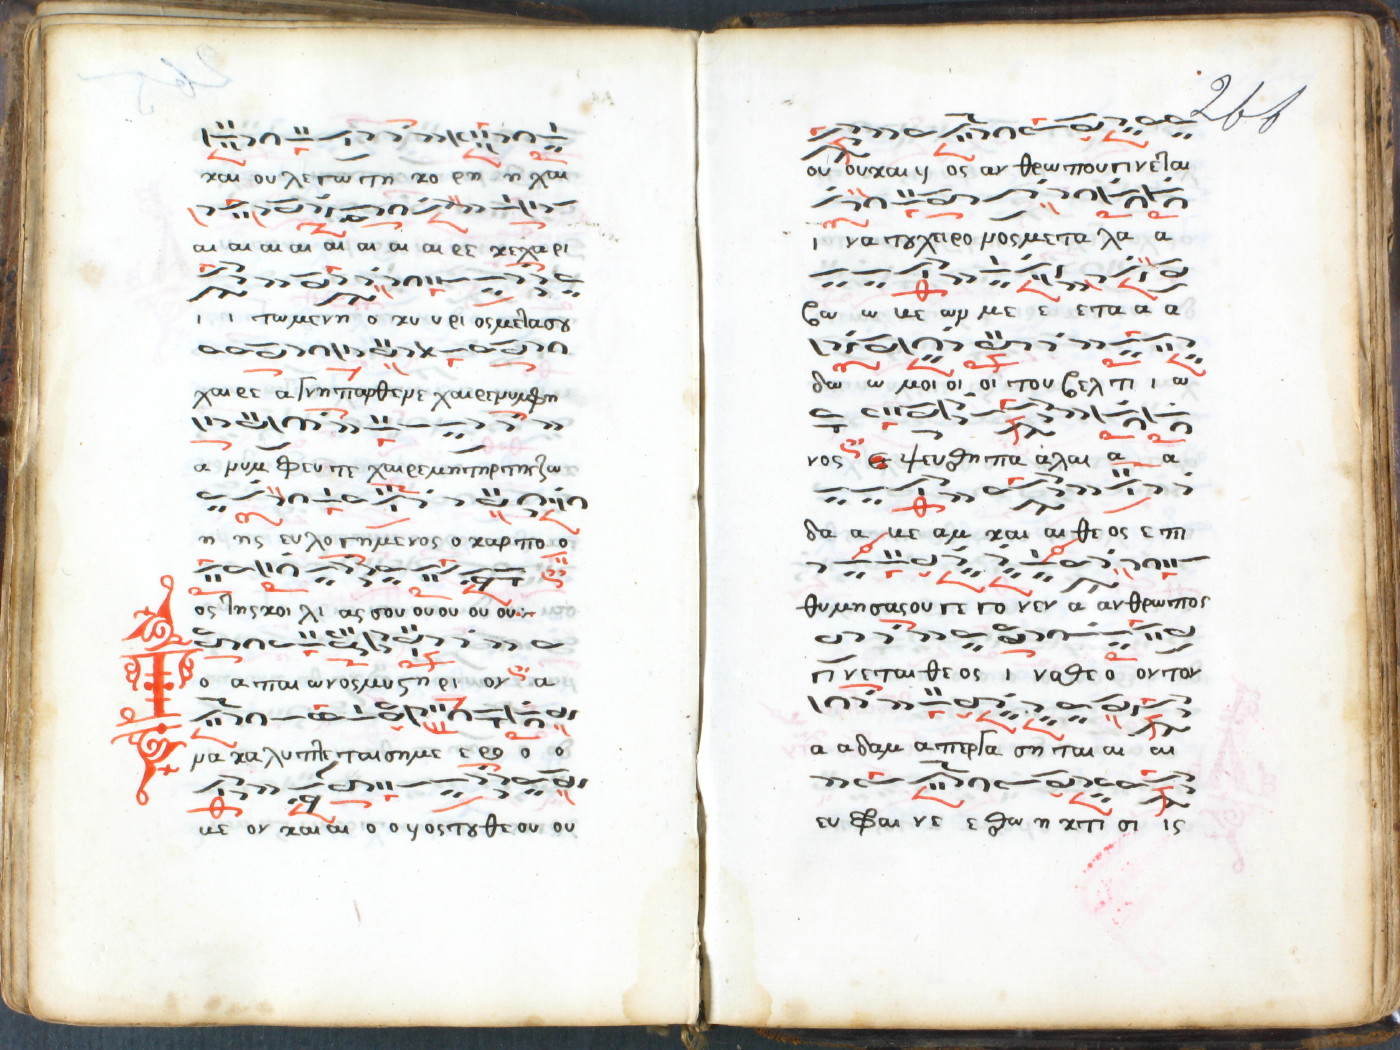 και ου λε γω τη κο ρη η χαι
αι αι αι αι αι αι αι αι ρε κε χα ρι
ι ι τω με νη ο κυ υ ρι ος με τα σου
χαι ρε α γνη παρ θε νε χαι ρε νυμ φη
α νυμ φευ τε χαι ρε μη τηρ της ζω
η ης ευ λο γη με νος ο καρ πο ο
ος της κοι λι ας σου ου ου ου ου
Το απ αι ω νος μυ στη ρι ον α
να κα λυ πτε ται ση με ε ρο ο ο
με ον και αι ο ο υι ος του θε ου ου
266
ου ου και υι ος αν θρω που γι νε ται
ι να του χει ρο νος με τα λα α
βω ω με ων με ε ε τα α α
δω ω μοι οι οι του βελ τι ι ω
νος Ε ψευ θη πα α λαι α α
δα α με αμ και αι θε ος ε πι
θυ μη σας ου γε γο νεν α αν θρω πος
γι νε ται θε ος ι να θε ο ον τον
α α δαμ α περ γα ση ται αι αι
ευ φραι νε ε θω η κτι σι ις